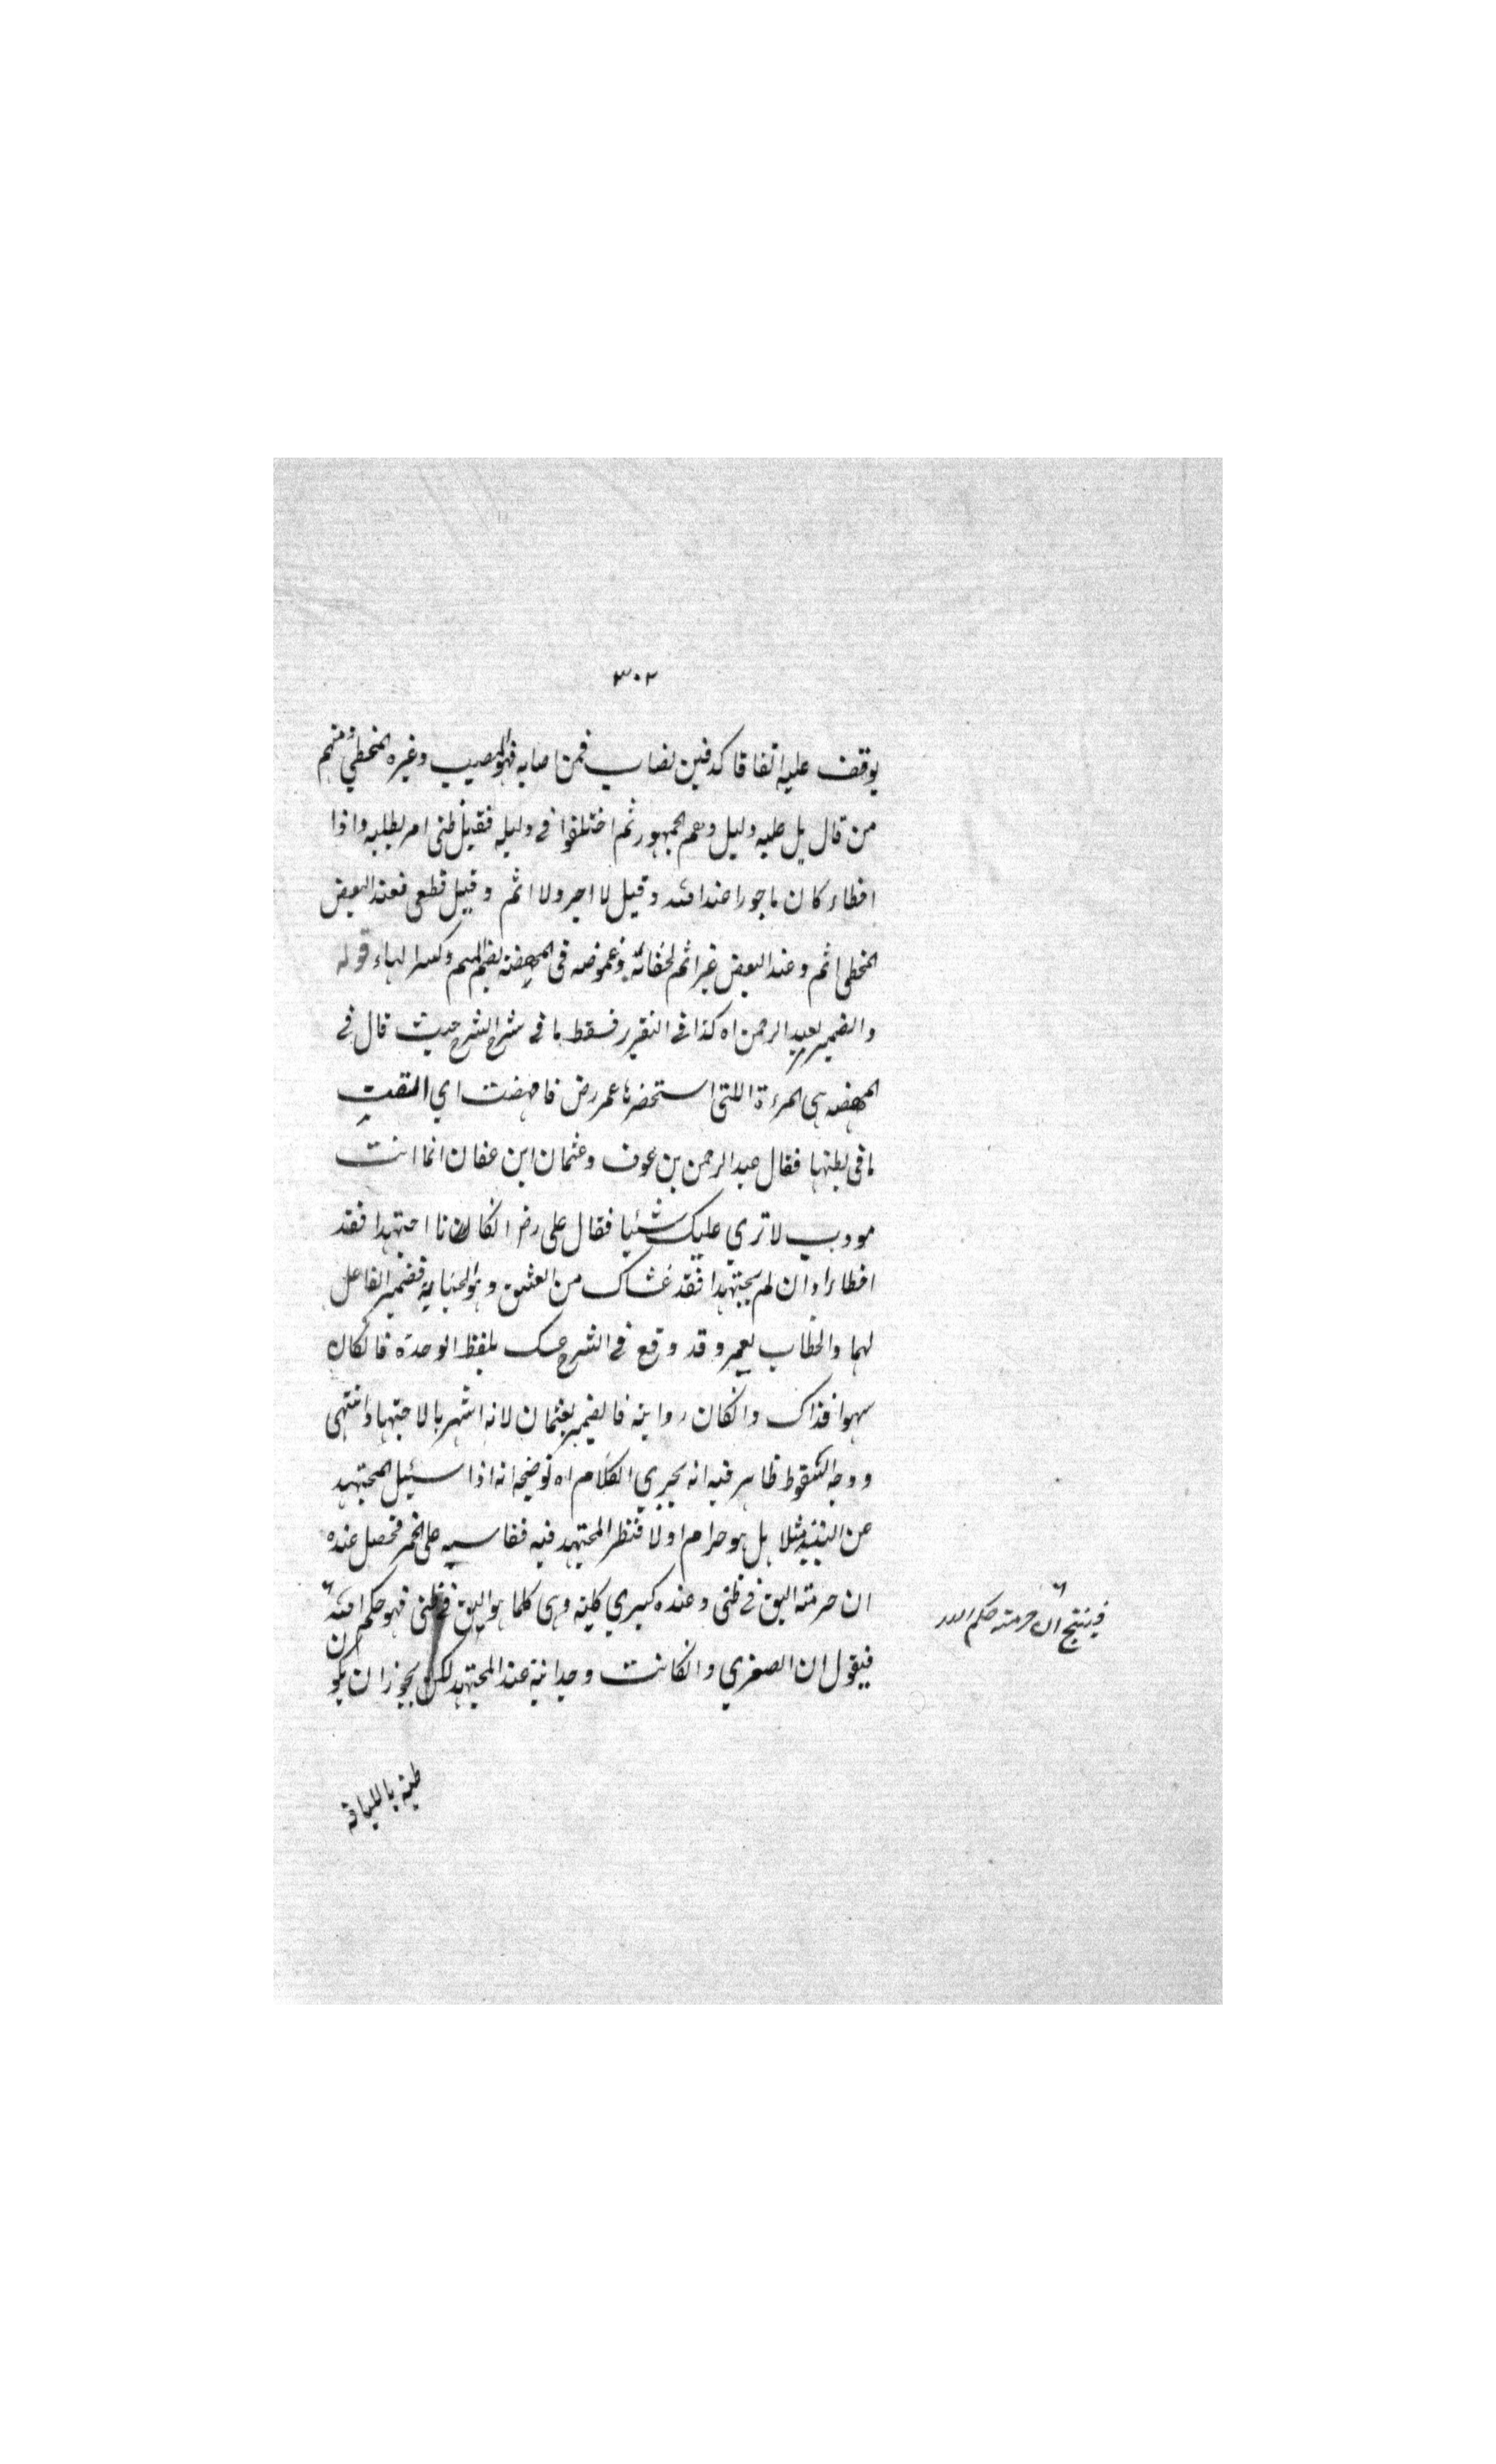 ٣٠٢
يوقف عليه اتفاقا كدفين يصاب فمن اصابه فهو المصيب وغيره المخطئ ومنهم
من قال بل عليه دليل وهم الجمهور ثم اختلفوا في دليله فقيل ظني امر بطلبه واذا
اخطاء كان ماجورا عند الله وقيل لا اجر ولا اثم وقيل قطعي فعند البعض
المخطي اثم وعند البعض غير اثم لخفائه وغموضه في المجهضة بضم الميم وكسر الهاء قوله
والضمير لعبد الرحمن اه كذا في التقرير فسقط ما في شرح الشرح حيث قال في
المجهضه هي المرءة اللتي استحضرها عمر رض فاجهضت اي القت
ما في بطنها فقال عبد الرحمن بن عوف وعثمان ابن عفان انما انت
مودب لا نري عليك شئيا فقال علي رض انكانا اجتهدا فقد
اخطاءا وان لم يجتهدا فقد غشاك من الغش وهو الخيانة فضمير الفاعل
لهما والخطاب لعمر وقد وقع في الشرح غشك بلفظ الوحدة فانكان
سهوا فذاك وانكان رواية فالضمير لعثمان لانه اشهر بالاجتهاد انتهى
ووجه السقوط ظاهر فيه انه يجري الكلام اه توضيحه انه اذا سئيل المجتهد
عن النبيذ مثلا هل هو حرام اولا فنظر المجتهد فيه فقاسه على الخمر فحصل عنده
ان حرمته اليق في ظني وعنده كبري كلية وهي كلما هو اليق في ظني فهو حكم الله
فينتج ان حرمته حكم الله
فيقول ان الصغري وانكانت وجدانية عند المجتهد لكن يجوز ان يكون
ظنية باللياقة